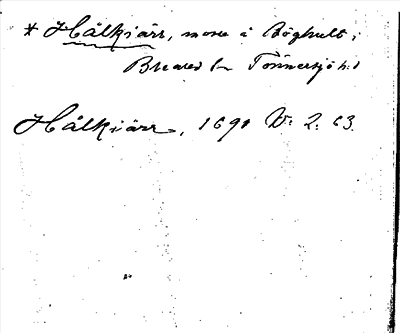 * Hålkiärr, mosse i Böghult i
Breared sn Tönnersjö hd
Hålkiärr, 1691 W: 2: 63.